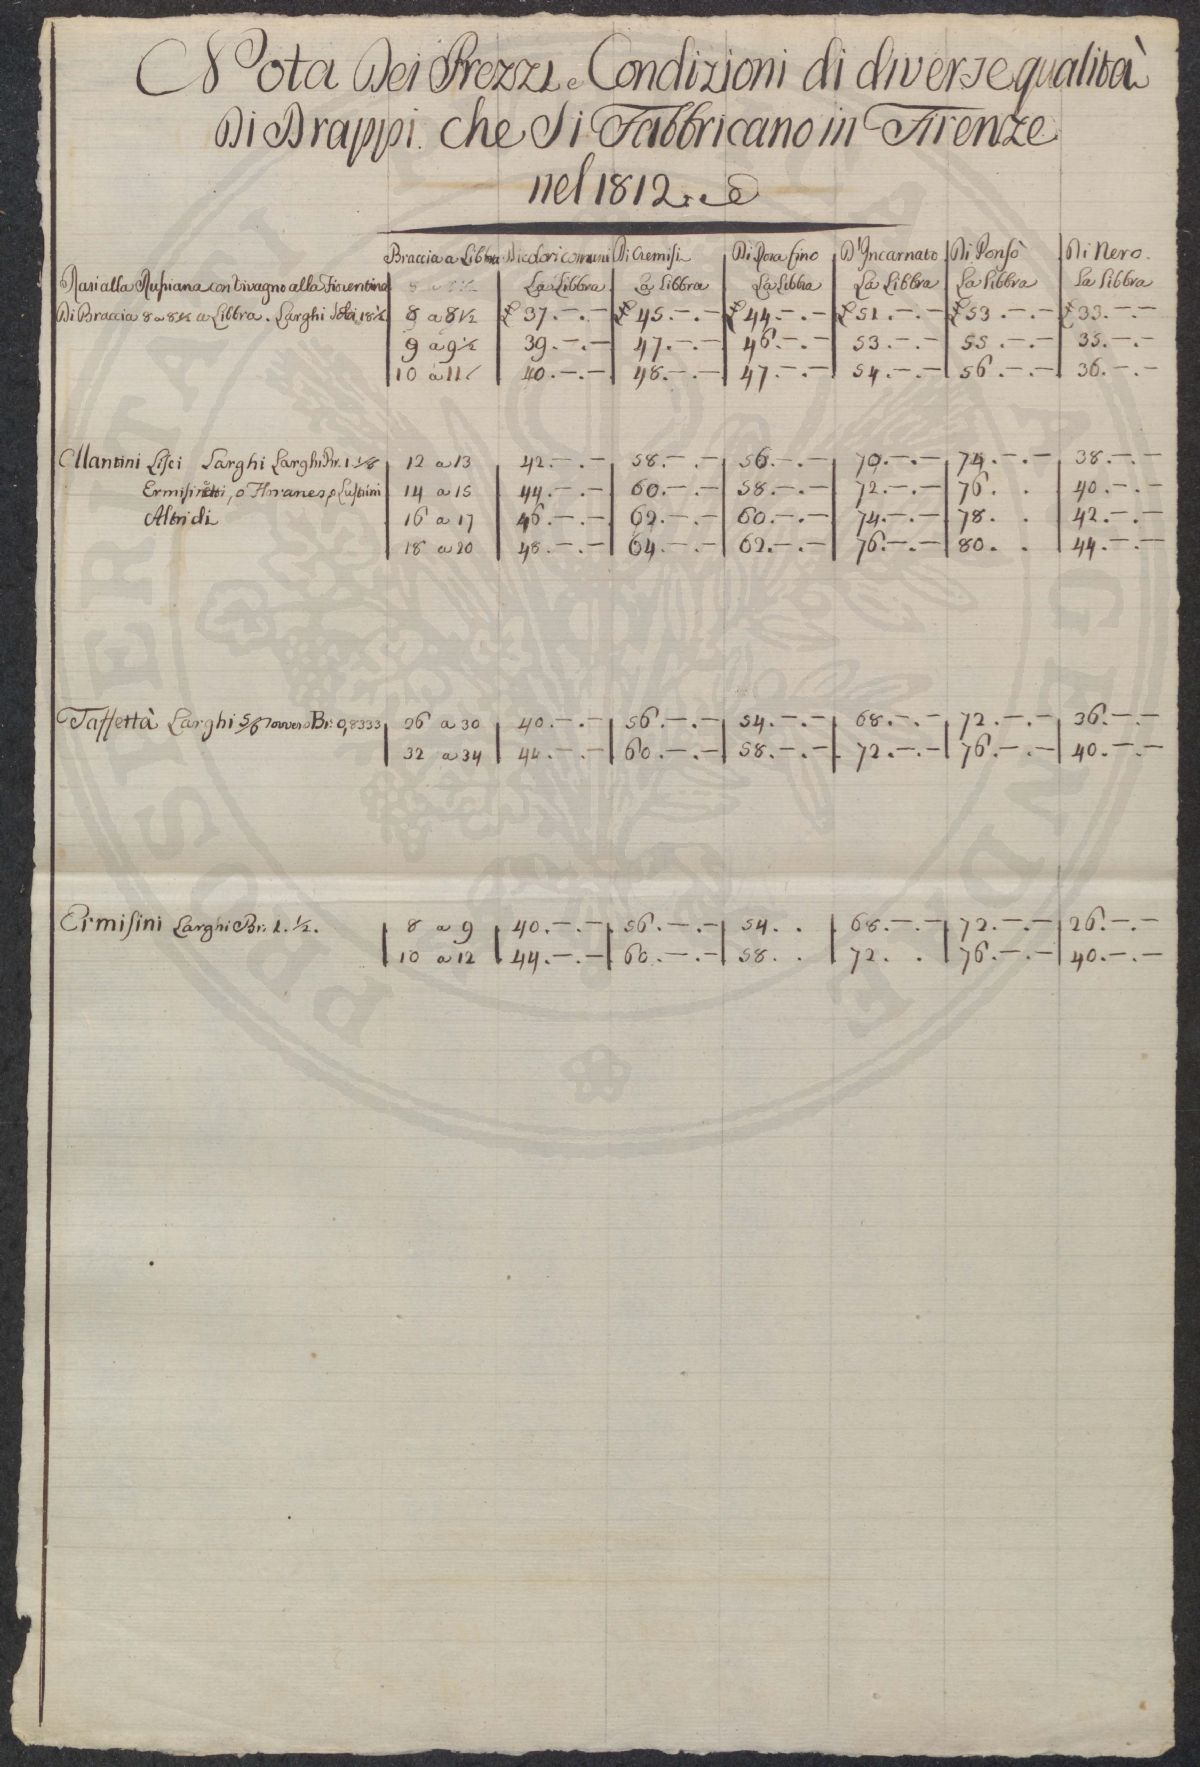 Nota Dei Prezzi e Condizioni di diverse qualità
Di Drappi che si Fabbricano in Firenze
nel 1812
Braccia a Libbra Di colori comuni Di Cremisi Di Dora fino D'Incarnato Di Ponsò Di Nero.
Rasi alla Rusiana con Vivagno alla Fiorentina La Libbra La Libbra La Libbra La Libbra La Libbra La Libbra
Di Braccia 8 a 8½ a Libbra. Larghi Soldi 18½ 8 a 8½ £ 37.-.- £ 45.-.- £ 44.-.- £ 51.-.- £ 53.-.- £ 33.-.-
9 a 9½ 39.-.- 47.-.- 46.-.- 53.-.- 55.-.- 35.-.-
10 a 11 40.-.- 48.-.- 47.-.- 54.-.- 56.-.- 36.-.-
Mantini Lisci Larghi Larghi Br. 1 1/8 12 a 13 42.-.- 58.-.- 56.-.- 70.-.- 74.-.- 38.-.-
14 a 15 44.-.- 60.-.- 58.-.- 72.-.- 76. . 40.-.-
Altri di 16 a 17 46.-.- 62.-.- 60.-.- 74.-.- 78. . 42.-.-
18 a 20 48.-.- 64.-.- 62.-.- 76.-.- 80. . 44.-.-
Taffettà Larghi 5/6 ovvero Br: 0,8333 26 a 30 40.-.- 56.-.- 54.-.- 68.-.- 72.-.- 36.-.-
32 a 34 44.-.- 60.-.- 58.-.- 72.-.- 76.-.- 40.-.-
Ermisini Larghi Br. 1. ½. 8 a 9 40.-.- 56.-.- 54. . 68.-.- 72.-.- 26.-.-
10 a 12 44.-.- 60.-.- 58. . 72. . 76.-.- 40.-.-
PROSPERITATI PUBLICAE AUGENDAE